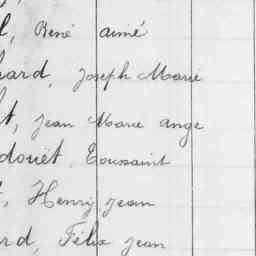 l, René aimé
ard, Joseph Marie
t, Jean Marie ange
douët, Toussaint
, Henry, Jean
rd, Félix Jean